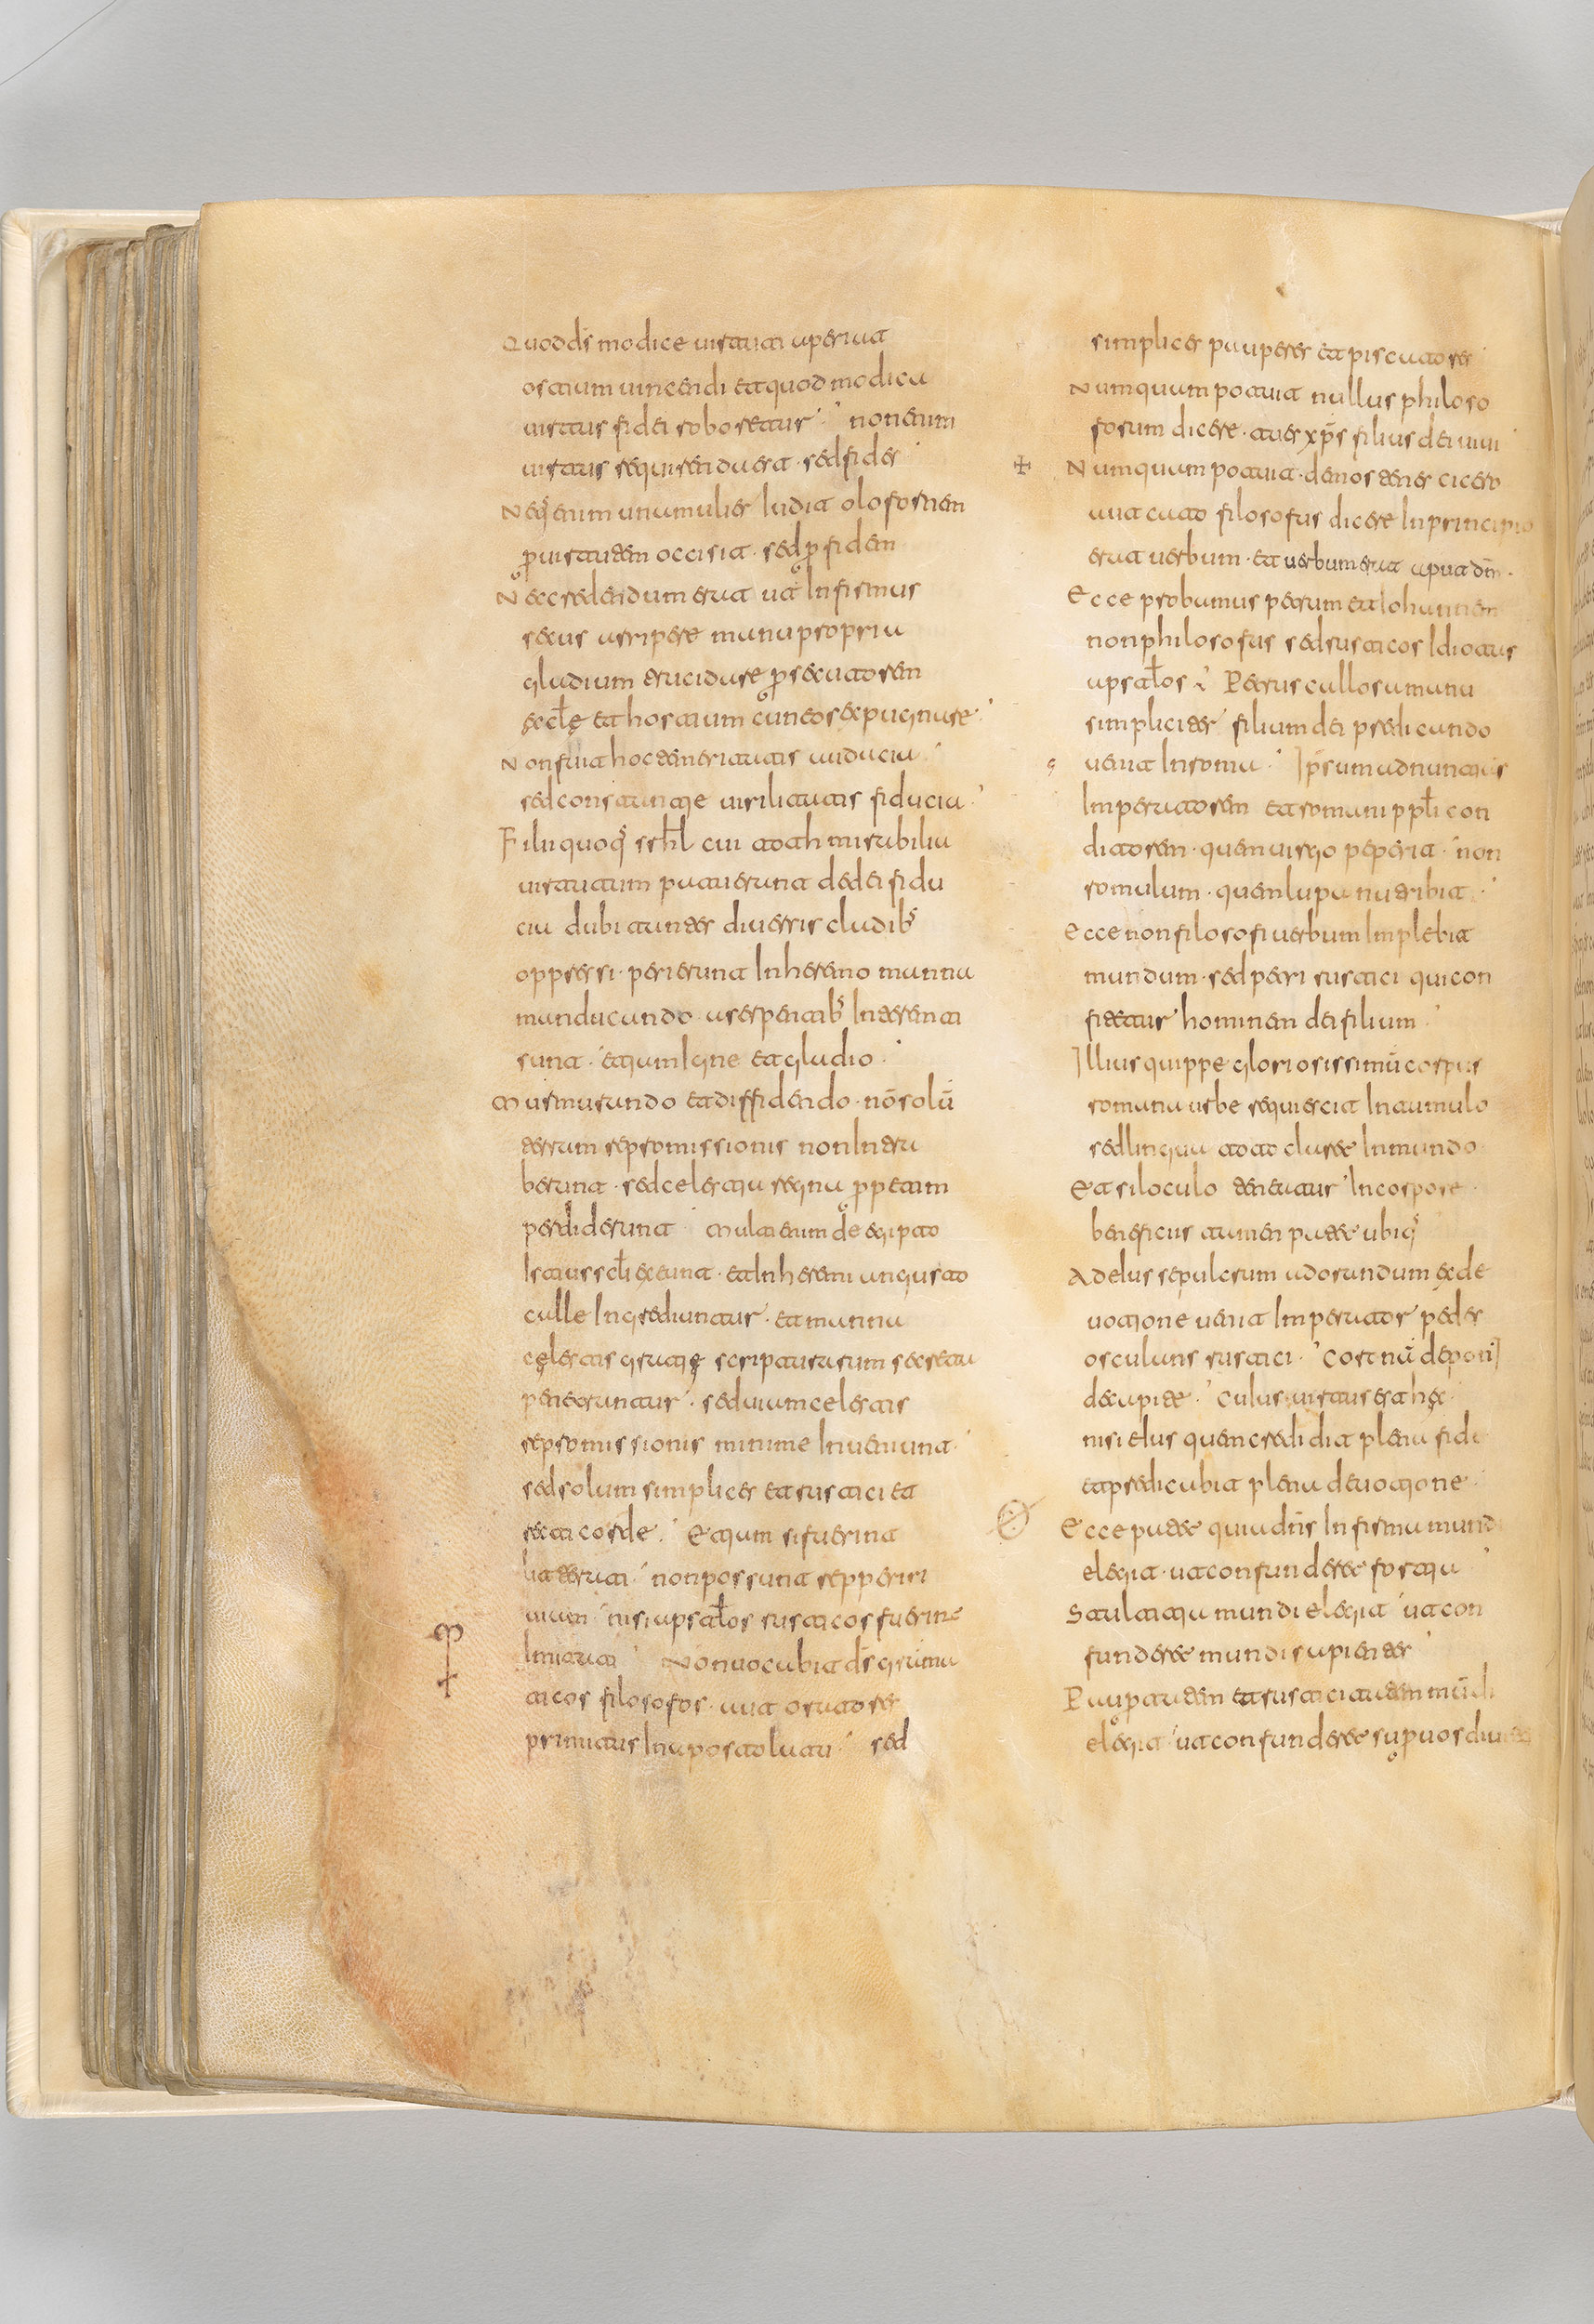 Quod ds̄ modice uirtuti aperiat
ostium uincendi et quod modica
uirtus fidei roboretur· non enim
uirtus requirenda est· sed fides
Neq; enim una mulier Iudit olofornen
ꝑ uirtutem occisit· sed ꝑ fidem
Nec credendum erat ut Infirmus
sexus arripere manu propria
gladium trucidare ꝑsecutorem
ęcłę et hostium cuneos expugnare·
Non fuit hoc temeritatis audacia
sed constantię uirilitatis fiducia·
Filii quoq; srhl cui tot mirabilia
uirtutum putauerunt de dei fidu
cia dubitantes diuersis cladib;
oppressi· perierunt In heremo manna
manducando a serpentib; Interemti
sunt· etiam Igne et gladio·
Murmurando et diffidendo· nō solū
terram repromissionis non Intra
berunt· sed celestia regna ꝑpetim
perdiderunt Multi enim de egipto
Istius scłi exeunt· et In heremi angusto
calle Ingrediuntur· et manna
cęlestis gratię scripturarum secreta
penetrantur· sed uiam celestis
repromissionis minime Inueniunt·
sed solum simplices et rustici et
recti corde· Etiam si fuerint
litterati non possunt repperiri
uiam nisi apsałos rusticos fuerint
Imitati Non uocabit ds̄ grama
ticos filosofos· aut oratores
primitus In apostolatu· sed
simplices pauperes et piscatores
Numquam potuit nullus philoso
forum dicere· tu es xp̄s filius dei uiui
Numquam potuit· demostenes cicero
aut cato filosofus dicere In principio
erat uerbum· et uerbum erat aput dm̄·
Ecce probamus petrum et Iohannem
non philosofus sed rusticos Idiotas
apsałos Petrus callosa manu
simpliciter filium dei predicando
uenit In roma· Ipsum adnuntians
Imperatorem et romani ppłi con
ditorem· quem uirgo peperit· non
romulum· quem lupa nutribit·
Ecce non filosofi uerbum Implebit
mundum· sed petri rustici qui con
fitetur hominem dei filium
Illius quippe gloriosissimū corpus
romana urbe requiescit In tumulo
sed lingua toto claret In mundo
Et si loculo tenetur In corpore·
beneficus tamen patet ubiq;
Ad eius sepulcrum adorandum ex de
uotione uenit Imperator pedes
osculans rustici· Coronā deponi
decupit· Cuius uirtus est hęc·
nisi eius quem credidit plena fide
et predicabit plena deuotione·
Ecce patet quia dn̄s Infirma mundi
elegit· ut confunderet fortia
Stultitia mundi elegit ut con
funderet mundi sapientes
Pauꝑtatem et rusticitatem mūdi
elegit ut confunderet suꝑuos diuites